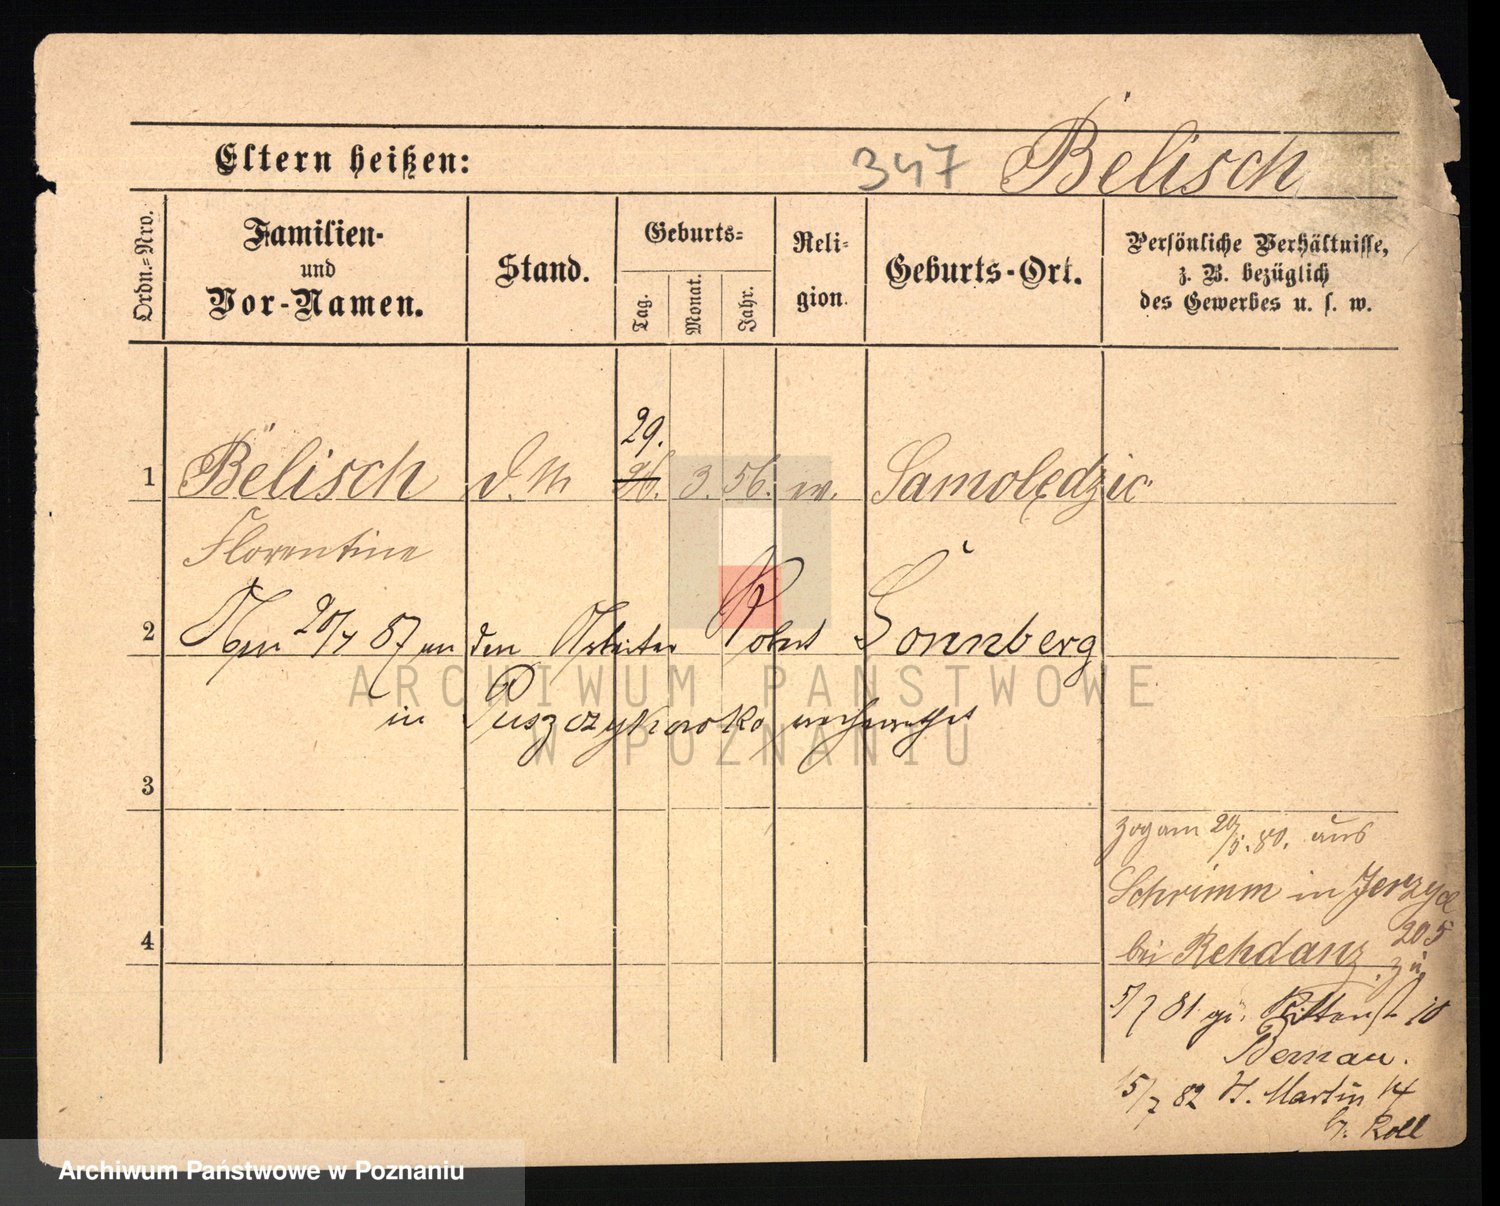 Eltern heißen:
347 Bëlisch
Ordn.=Nro.
Familien-
und
Vor-Namen.
Stand.
Geburts=
Tag.
Monat.
Jahr.
Reli=
gion.
Geburts-Ort.
Persönliche Verhältnisse,
z. B. bezüglich
des Gewerbes u. s. w.
29.
1 Bëlisch d. M 26. 3. 56. ev. Samolędzic
Florentine
2 20/7 87 an den Arbeiter Robert Sonnberg
in Puszczykowko verheirathet
3
zog am 20/5. 80. aus
Schrimm in Jerzyce
4 bei Rehdanz. 205
zu
5/7 81 gr. Ritterst 10
Bernau.
5/7 82 St. Martin 14
b. Roll
ARCHIWUM PAŃSTWOWE
W POZNANIU
Archiwum Państwowe w Poznaniu